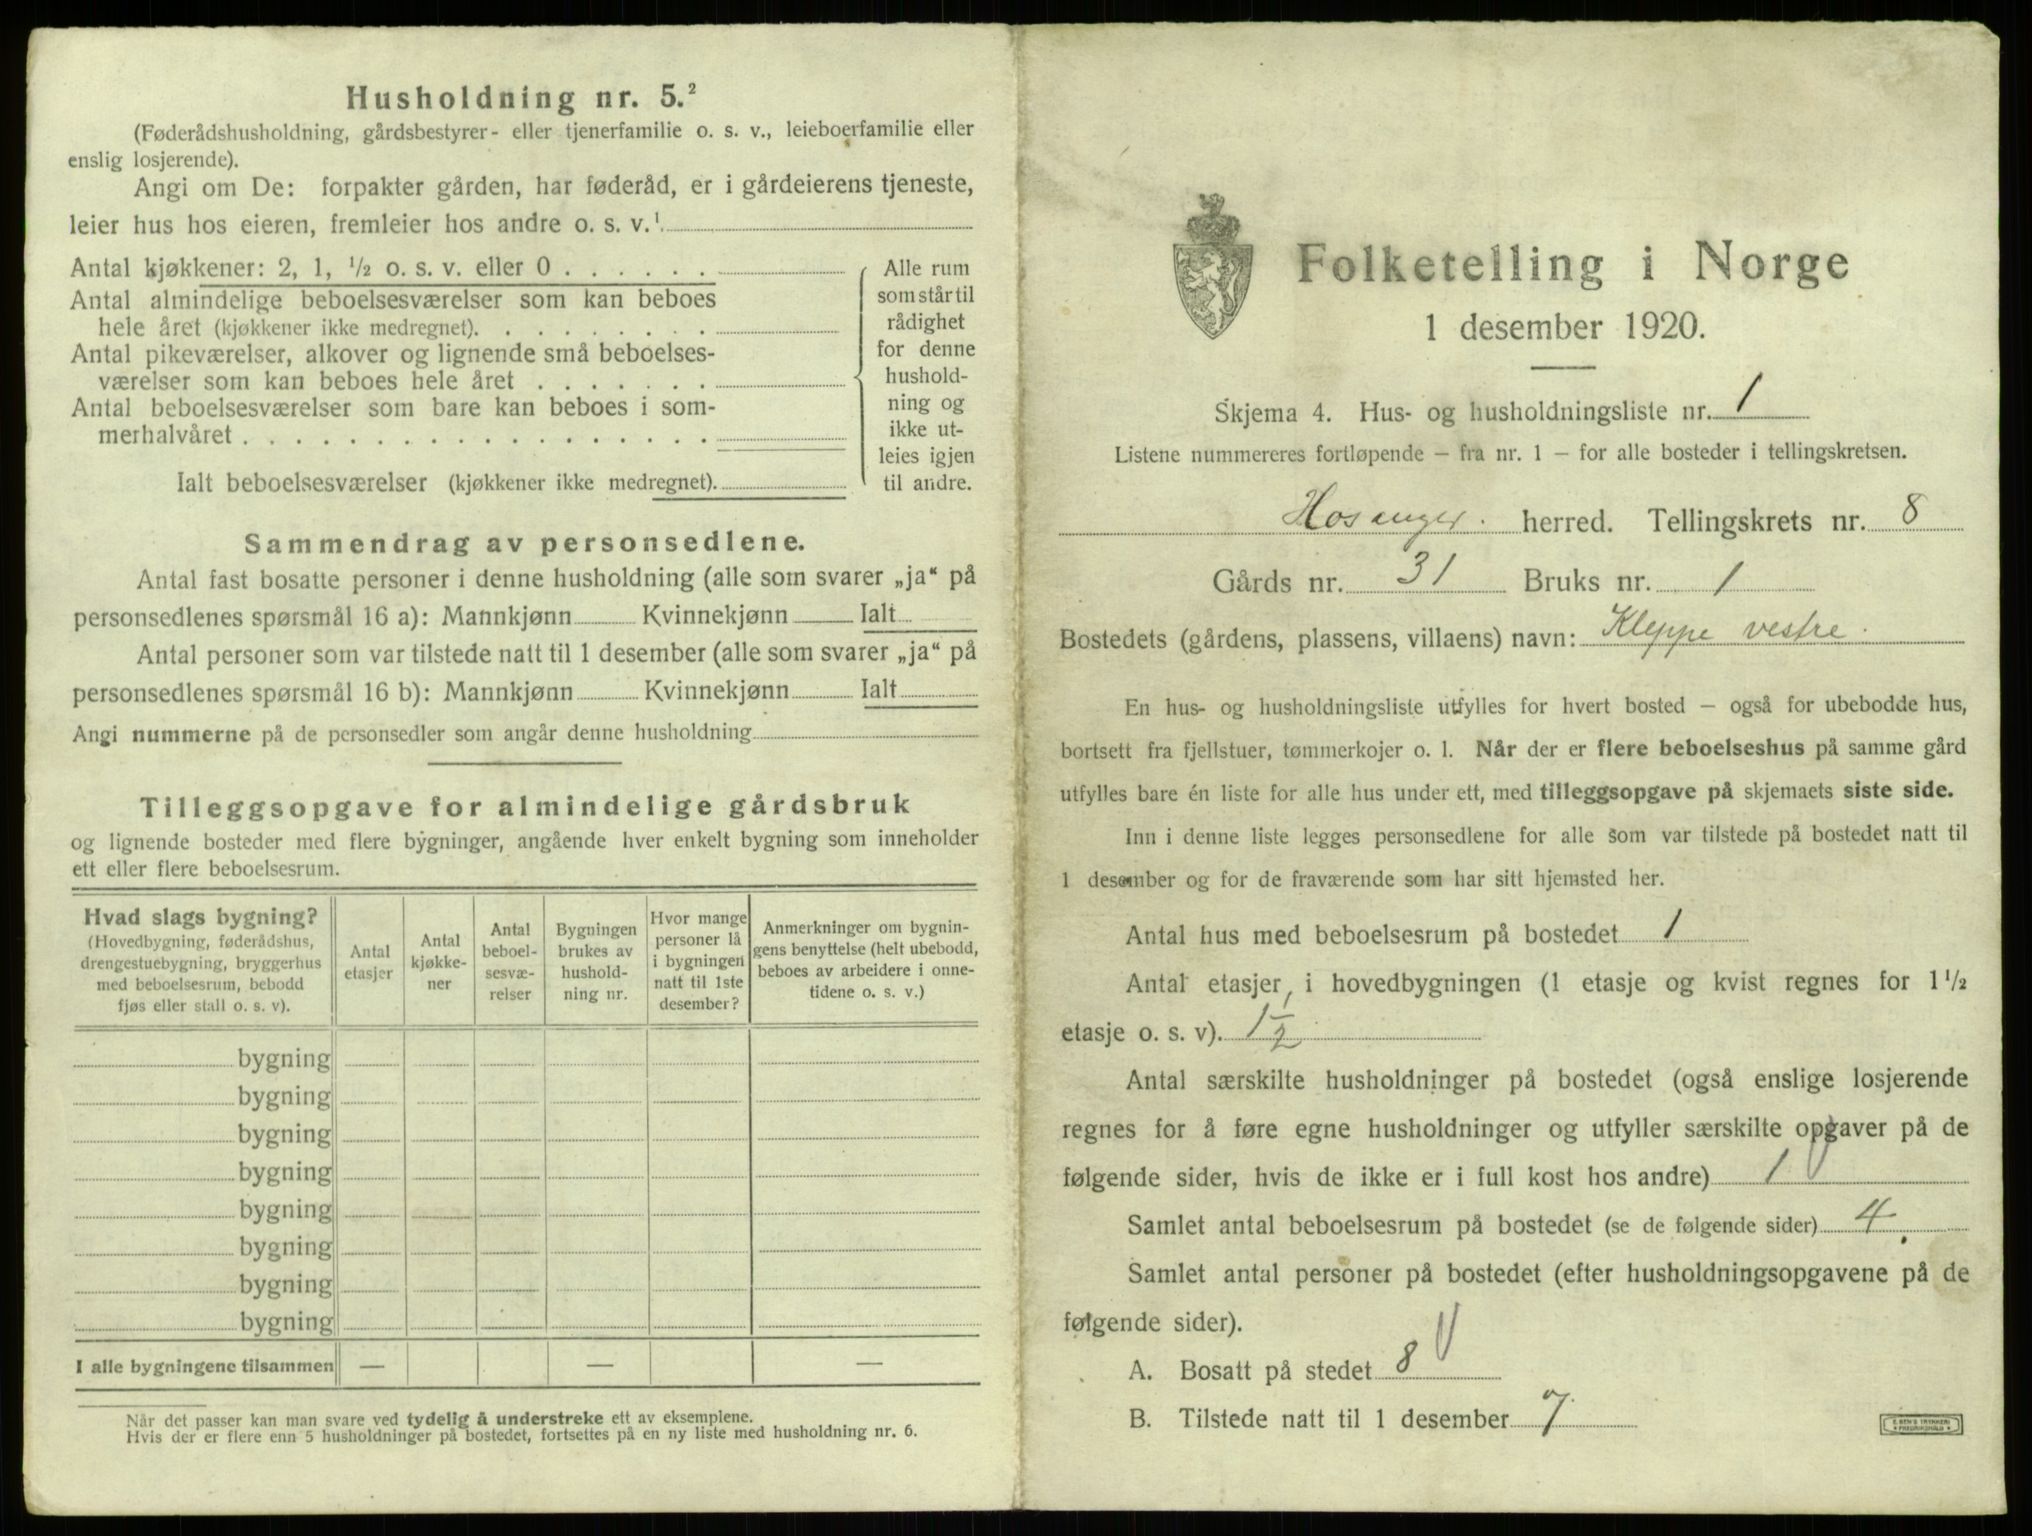 Husholdning nr. 5.²
(Føderådshusholdning, gårdsbestyrer- eller tjenerfamilie o. s. v., leieboerfamilie eller
enslig losjerende).
Angi om De: forpakter gården, har føderåd, er i gårdeierens tjeneste,
leier hus hos eieren, fremleier hos andre o. s. v.¹
Antal kjøkkener: 2, 1, ½ o. s. v. eller 0 . . . . . .
Antal almindelige beboelsesværelser som kan beboes
hele året (kjøkkener ikke medregnet). . . . . . . . .
Antal pikeværelser, alkover og lignende små beboelses-
værelser som kan beboes hele året . . . . . . .
Antal beboelsesværelser som bare kan beboes i som-
merhalvåret . . . . . . . . . . . . . . . . . .
Ialt beboelsesværelser (kjøkkener ikke medregnet).
Alle rum
som står til
rådighet
for denne
hushold-
ning og
ikke ut-
leies igjen
til andre.
Sammendrag av personsedlene.
Antal fast bosatte personer i denne husholdning (alle som svarer „ja“ på
personsedlenes spørsmål 16 a): Mannkjønn Kvinnekjønn Ialt
Antal personer som var tilstede natt til 1 desember (alle som svarer „ja“ på
personsedlenes spørsmål 16 b): Mannkjønn Kvinnekjønn Ialt
Angi nummerne på de personsedler som angår denne husholdning
Tilleggsopgave for almindelige gårdsbruk
og lignende bosteder med flere bygninger, angående hver enkelt bygning som inneholder
ett eller flere beboelsesrum.
Hvad slags bygning?
(Hovedbygning, føderådshus,
drengestuebygning, bryggerhus
med beboelsesrum, bebodd
fjøs eller stall o. s. v).
Antal
etasjer
Antal
kjøkke-
ner
Antal
beboel-
sesvæ-
relser
Bygningen
brukes av
hushold-
ning nr.
Hvor mange
personer lå
i bygningen
natt til 1ste
desember?
Anmerkninger om bygnin-
gens benyttelse (helt ubebodd,
beboes av arbeidere i onne-
tidene o. s. v.)
bygning
bygning
bygning
bygning
bygning
bygning
bygning
bygning
I alle bygningene tilsammen — — —
Når det passer kan man svare ved tydelig å understreke ett av eksemplene.
Hvis der er flere enn 5 husholdninger på bostedet, fortsettes på en ny liste med husholdning nr. 6.
Folketelling i Norge
1 desember 1920.
Skjema 4. Hus- og husholdningsliste nr. 1
Listene nummereres fortløpende — fra nr. 1 — for alle bosteder i tellingskretsen.
Hosanger. herred. Tellingskrets nr. 8
Gårds nr. 31 Bruks nr. 1
Bostedets (gårdens, plassens, villaens) navn: Kleppe vestre.
En hus- og husholdningsliste utfylles for hvert bosted — også for ubebodde hus,
bortsett fra fjellstuer, tømmerkojer o. l. Når der er flere beboelseshus på samme gård
utfylles bare én liste for alle hus under ett, med tilleggsopgave på skjemaets siste side.
Inn i denne liste legges personsedlene for alle som var tilstede på bostedet natt til
1 desember og for de fraværende som har sitt hjemsted her.
Antal hus med beboelsesrum på bostedet 1
Antal etasjer i hovedbygningen (1 etasje og kvist regnes for 1½
etasje o. s. v). 1½
Antal særskilte husholdninger på bostedet (også enslige losjerende
regnes for å føre egne husholdninger og utfyller særskilte opgaver på de
følgende sider, hvis de ikke er i full kost hos andre) 1
Samlet antal beboelsesrum på bostedet (se de følgende sider) 4.
Samlet antal personer på bostedet (efter husholdningsopgavene på de
følgende sider).
A. Bosatt på stedet 8
B. Tilstede natt til 1 desember 7